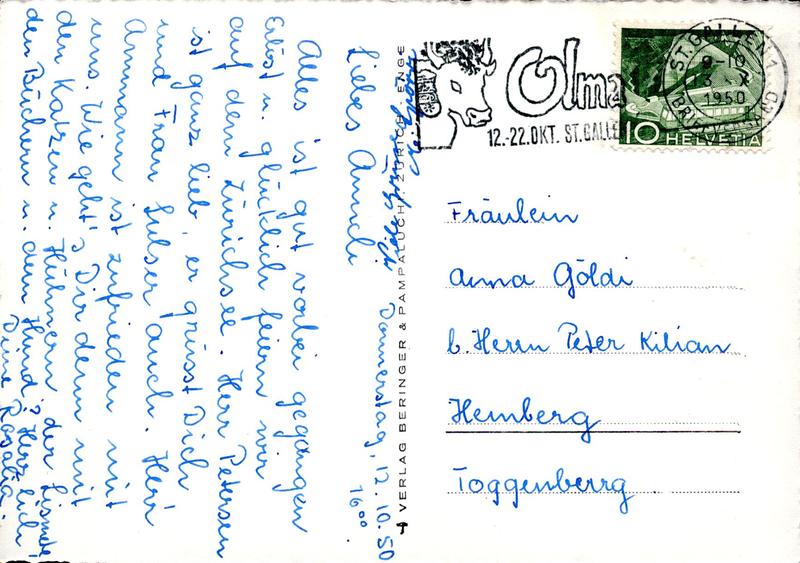 Donnerstag, 12.10.50
16⁰⁰.
Liebes Anneli
Alles ist gut vorbei gegangen
Erlöst u. glücklich feiern wir
auf dem Zürichsee. Herr Petersen
ist ganz lieb, er grüsst Dich
und Frau Sulser auch. Herr
Ammann ist zufrieden mit
uns. Wie geht's Dir denn mit
den Katzen u. Hühnern, der Lismete,
den Büchern u. dem Hund? Herzlich
Deine Rosalia.
VERLAG BERINGER & PAMPALUCHI ZÜRICH - ENGE
Olma
12.-22.OKT. ST.GALLE
ST.GALLEN 1
9-10
X
1950
10 HELVETIA
Fräulein
Anna Göldi
b. Herrn Peter Kilian
Hemberg
Toggenberrg